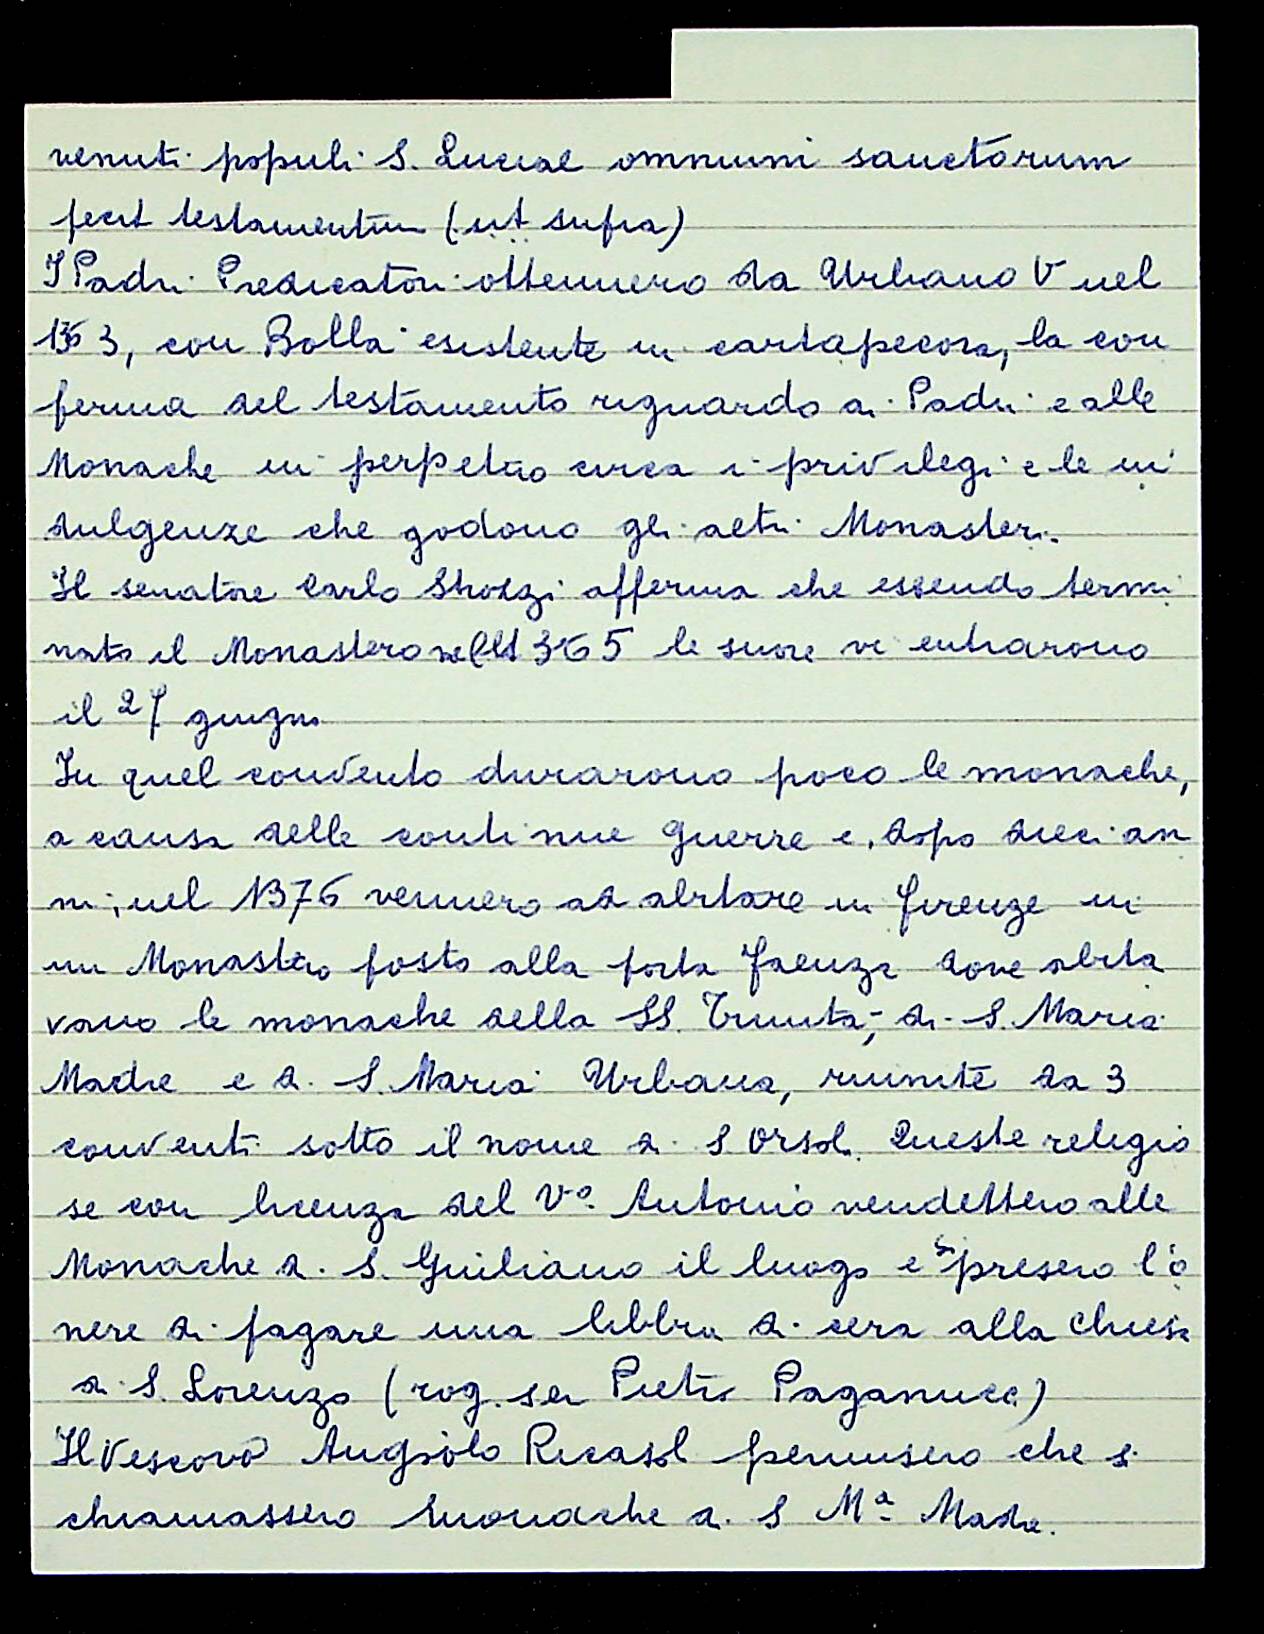 venuti populi S. Luciae omnium sanctorum
fecit testamentum (ut supra)
I Padri Predicatori ottennero da Urbano V nel
1363, con Bolla esistente in cartapecora, la con
ferma del testamento riguardo ai Padri e alle
Monache in perpetuo circa i privilegi e le in
dulgenze che godono gli altri Monasteri.
Il senatore Carlo Strozzi afferma che essendo termi
nato il Monastero nell 1365 le suore vi entrarono
il 27 giugno
In quel convento durarono poco le monache,
a causa delle continue guerre e, dopo dieci an
ni, nel 1376 vennero ad abitare in Firenze in
un Monastero posto alla porta Faenza dove abita
vano le monache della SS. Trinita, di S. Maria
Madre e di S. Maria Urbana, riunite da 3
conventi sotto il nome di S. Orsola. Queste religio
se con licenza del Vº Antonio vendettero alle
Monache di S. Giuliano il luogo e si presero l'o
nere di pagare una libbra di cera alla chiesa
di S. Lorenzo (rog. ser Pietro Paganucci)
Il Vescovo Angiolo Ricasol permisero che si
chiamassero monache di S Mª Madre.